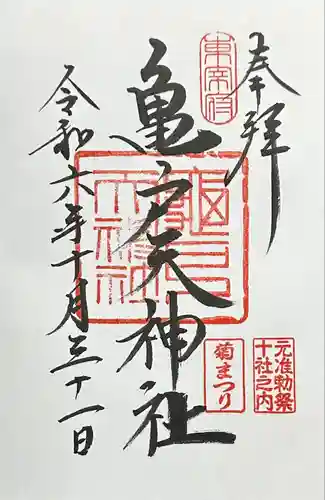 奉拝
東宰府
亀戸天神社
令和六年十月三十一日
元准勅祭
十社之内
菊まつり